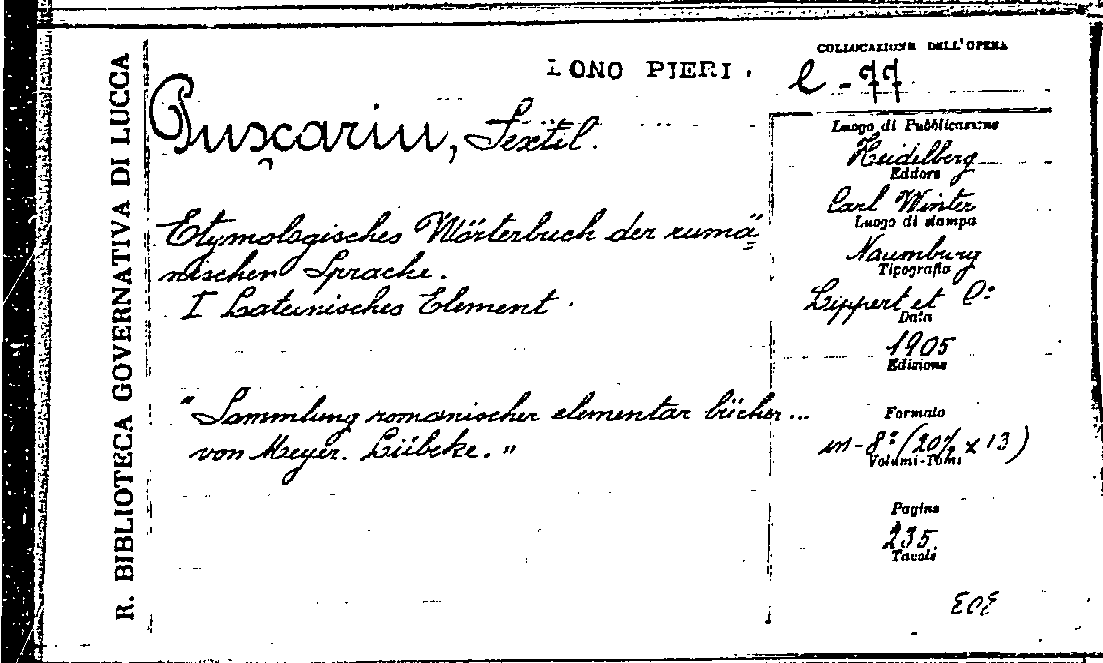 R. BIBLIOTECA GOVERNATIVA DI LUCCA
LONO PIERI.
COLLOCAZIONE DELL'OPERA
l-77
Pușcariu, Sextil.
Etymologisches Wörterbuch der rumä=
nischen Sprache.
I Lateinisches Element.
"Sammlung romanischer elementar bücher...
von Meyer. Lübcke."
Luogo di Pubblicazione
Heidelberg
Editore
Carl Winter
Luogo di stampa
Naumburg
Tipografia
Lippert et Cº
Data
1905
Edizione
Formato
in-8º (20½ x 13)
Volumi-Tomi
Pagine
235
Tavole